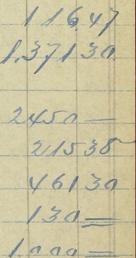 116,47
1,371 30
2450 —
215 38
461 30
130 =
1,000 =